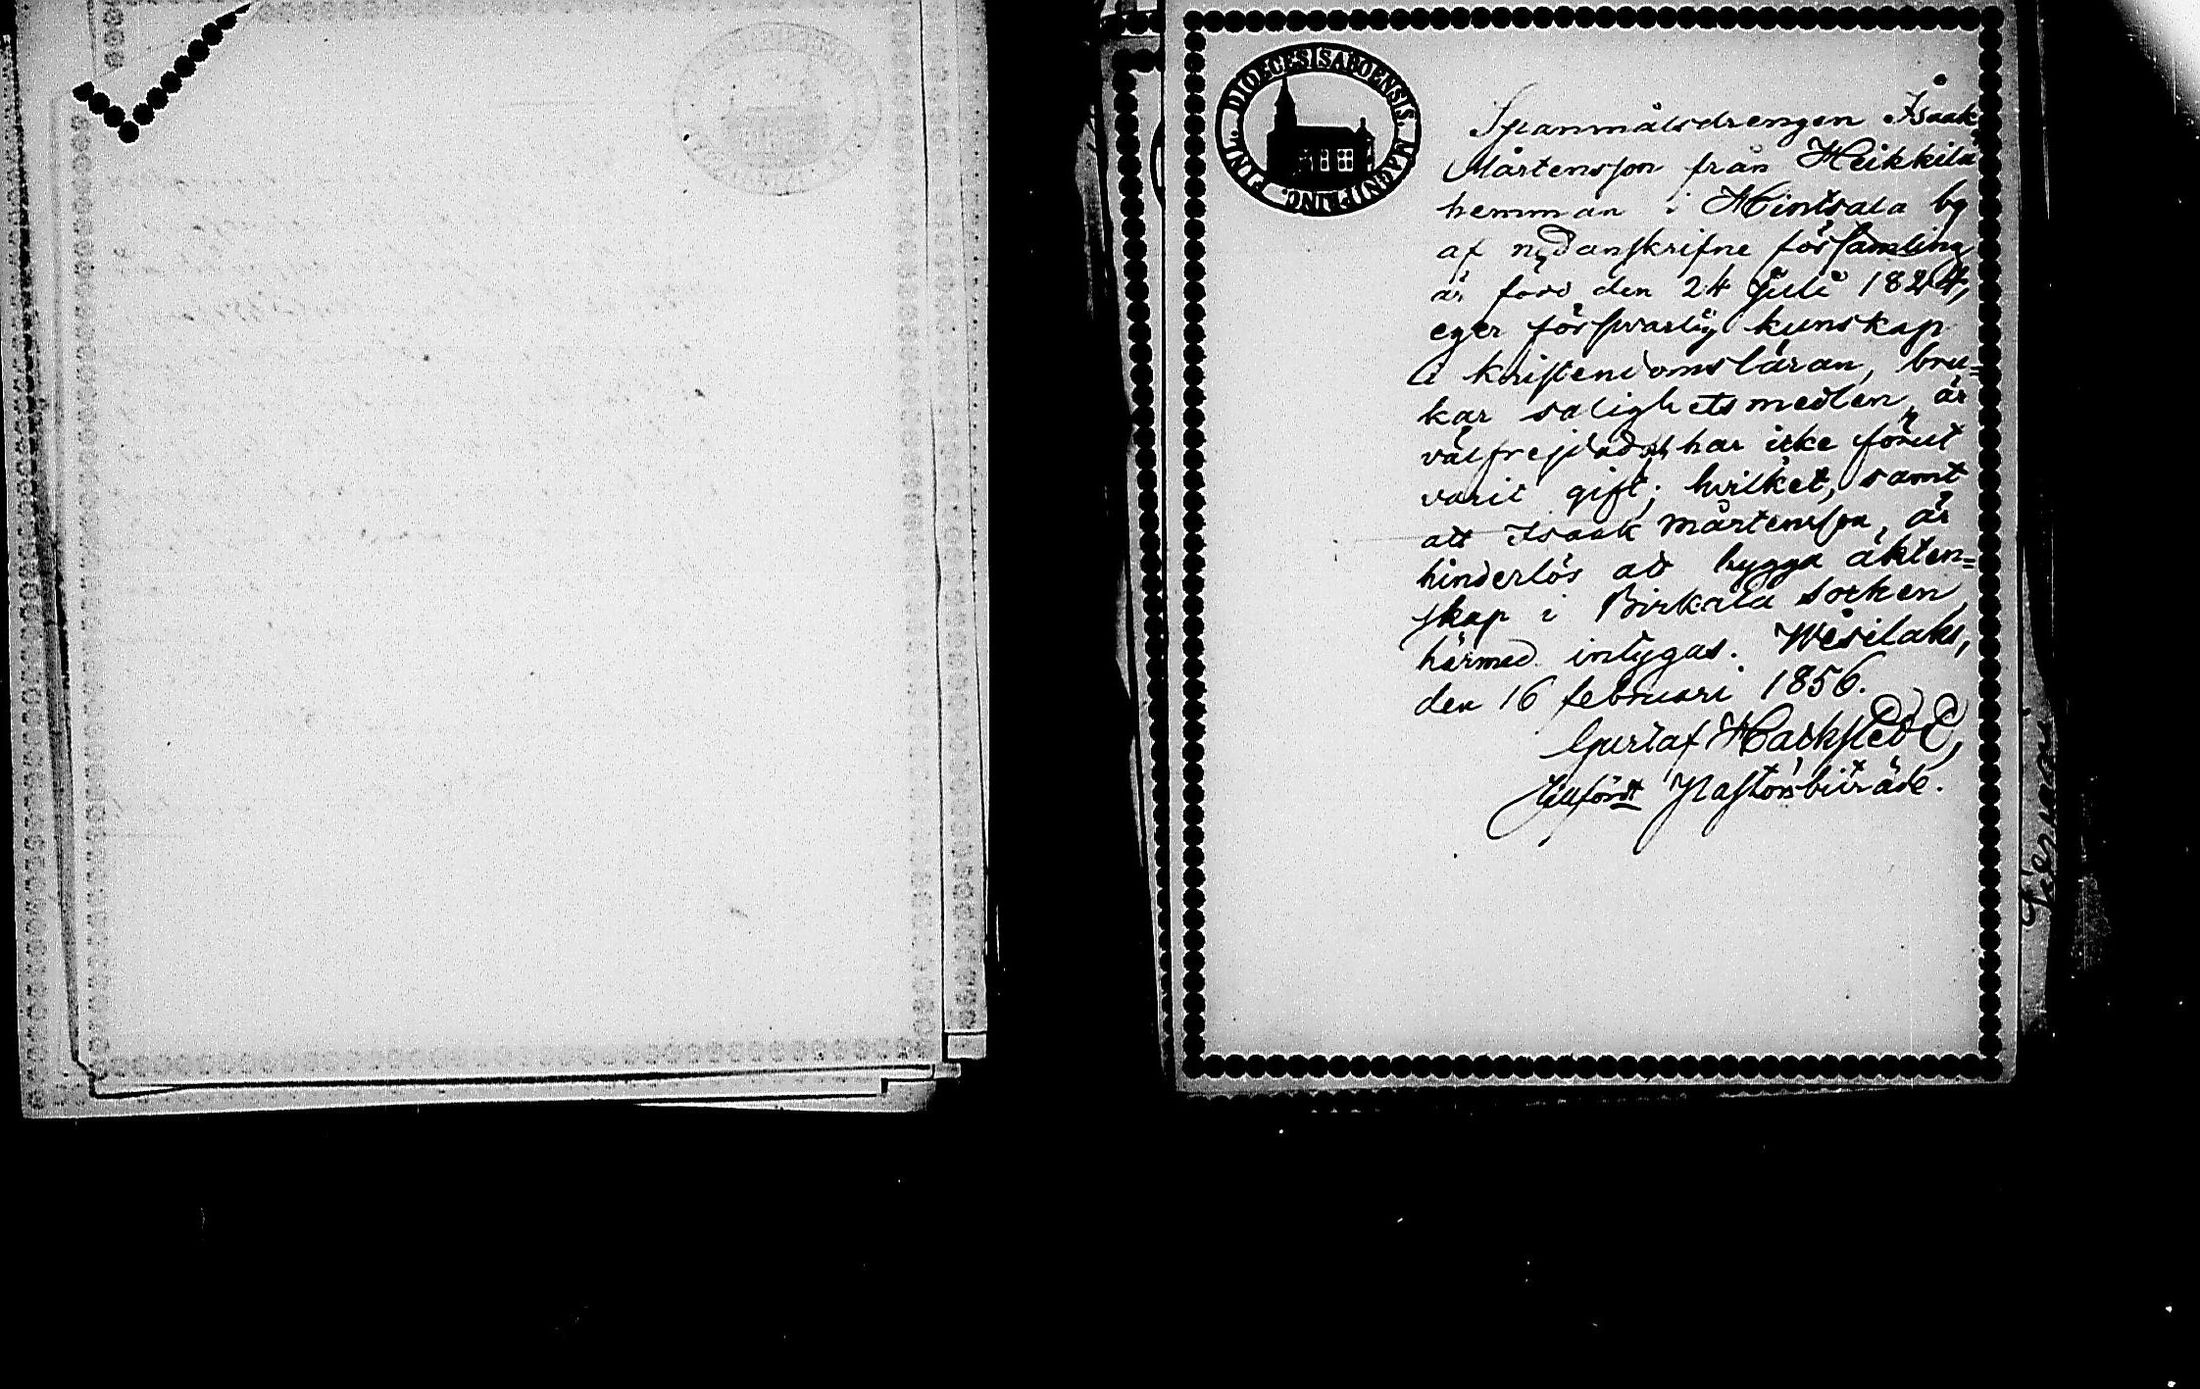 DIOECESIS ABOENSIS. MAGNI PRINC. FINL.
Spanmålsdrengen Isaak
Mårtensson från Heikkilä
hemman i Hintsala by
af nedanskrifne församling
är född den 24 Juli 1824,
eger försvarlig kunskap
i kristendomsläran, bru=
kar salighetsmedlen, är
välfrejdad, har icke förut
varit gift; hvilket, samt
att Isaak Mårtensson, är
hinderlös att bygga äkten=
skap i Birkala socken
härmed intygas. Wesilaks,
den 16 februari 1856.
Gustaf
Pastorsbiträde.